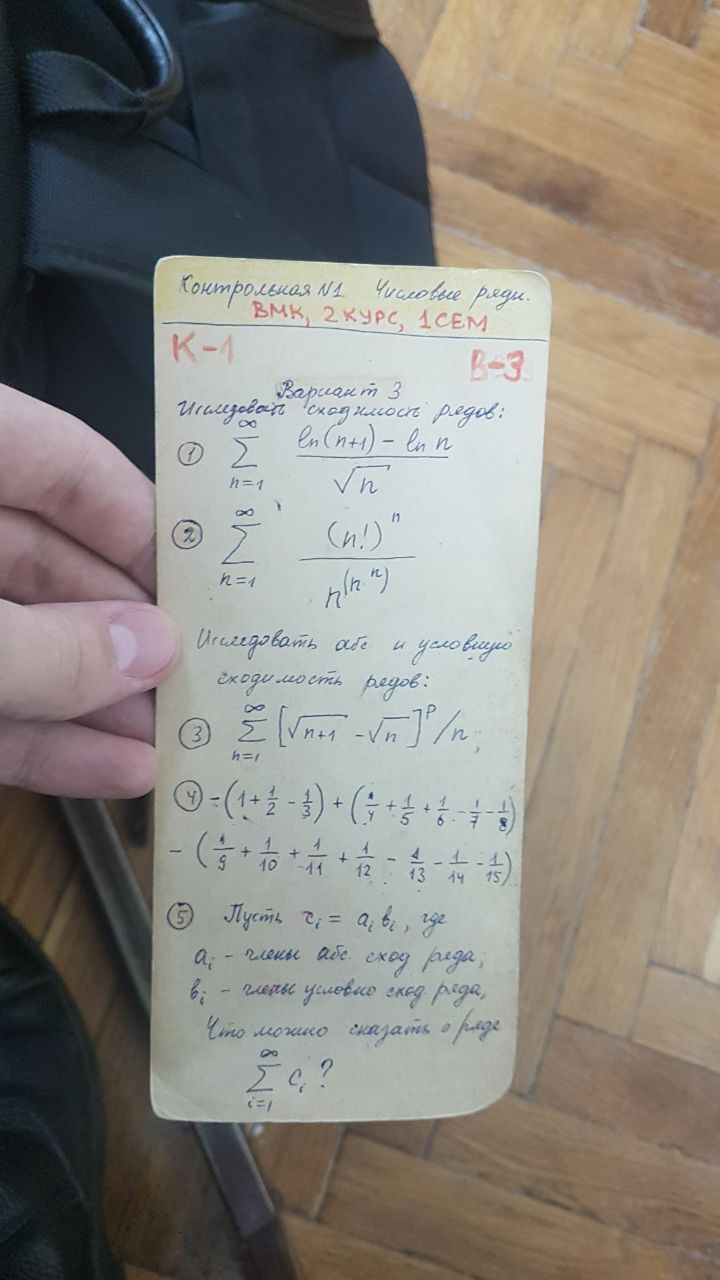 Контрольная №1. Числовые ряды.
ВМК, 2 КУРС, 1 СЕМ
К-1 В-3
Вариант 3
Исследовать сходимость рядов:
① ∑_{n=1}^{∞} (ln(n+1) - ln n) / √n
② ∑_{n=1}^{∞} (n!)^n / n^(n^n)
Исследовать абс. и условную
сходимость рядов:
③ ∑_{n=1}^{∞} [√n+1 - √n]^p / n;
④ -(1 + 1/2 - 1/3) + (1/4 + 1/5 + 1/6 - 1/7 - 1/8)
- (1/9 + 1/10 + 1/11 + 1/12 - 1/13 - 1/14 - 1/15)
⑤ Пусть c_i = a_i b_i, где
a_i - члены абс. сход ряда;
b_i - члены условно сход. ряда,
Что можно сказать о ряде
∑_{i=1}^{∞} c_i ?